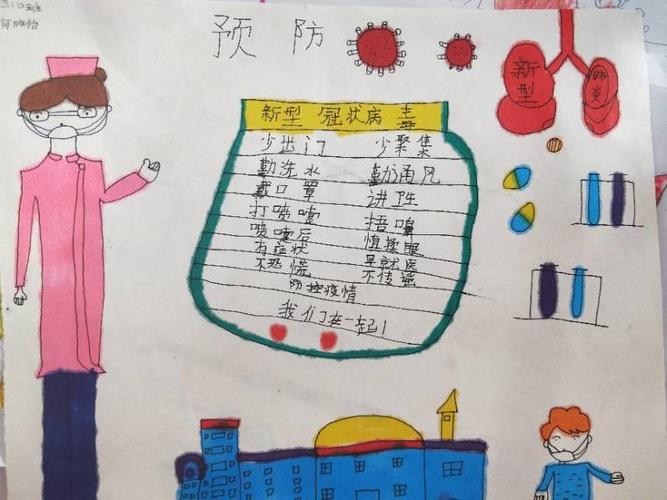 三(3)班
预 防
新型
肺炎
新型 冠状病毒
少出门 少聚集
勤洗水 勤通风
戴口罩 讲卫生
打喷嚏 捂嘴鼻
喷嚏后 慎揉眼
有症状 早就医
不恐慌 不传谣
防控疫情
我们在一起!